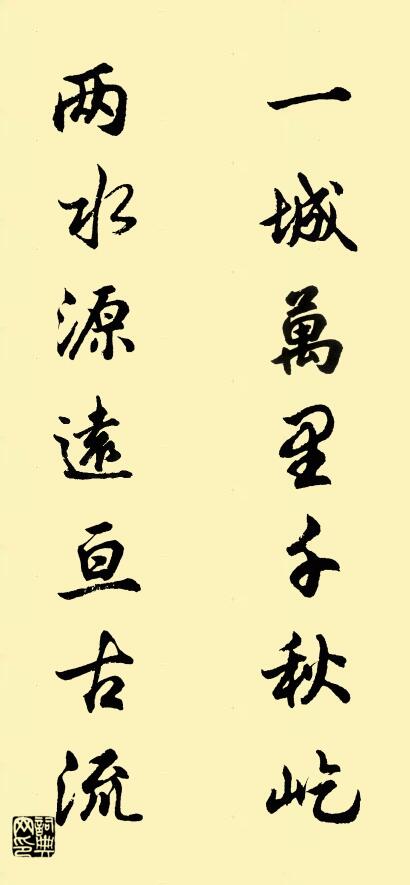 一城萬里千秋屹
两水源遠亘古流